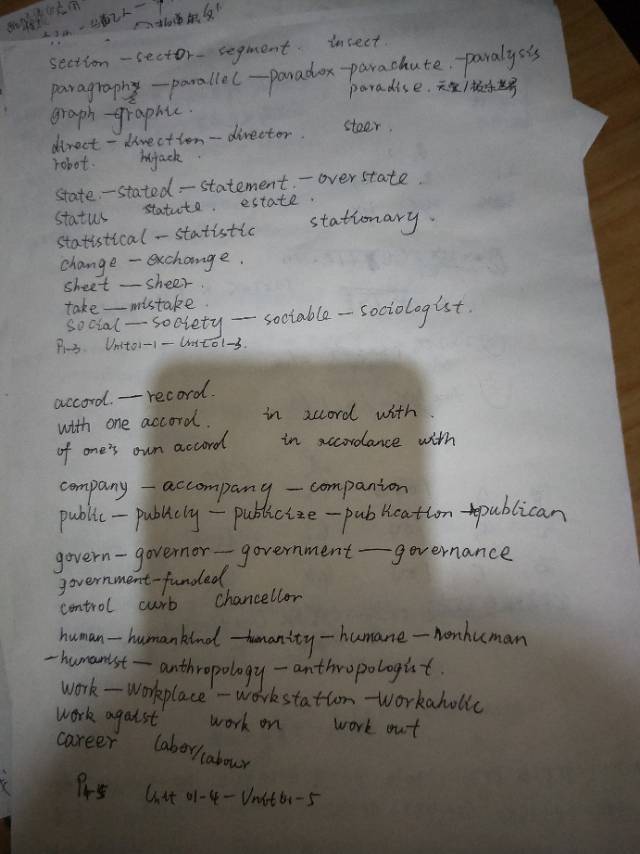 section - sector - segment. insect.
paragraph - parallel - paradox - parachute. - paralysis
paradise.
graph - graphic.
direct - direction - director. steer.
robot. hijack.
state. - stated - statement. - overstate.
status statute. estate.
statistical - statistic stationary.
change - exchange.
sheet - sheer.
take - mistake.
social - society - sociable - sociologist.
P1-3. Unit01-1 - Unit01-3.
accord. - record.
with one accord. in accord with.
of one's own accord in accordance with
company - accompany - companion
public - publicly - publicize - publication - publican
govern - governor - government - governance
government-funded
control curb chancellor
human - humankind - humanity - humane - nonhuman
- humanist - anthropology - anthropologist.
work - workplace - workstation - workaholic
work agaist work on work out
career labor/labour
Unit 01-4 - Unit01-5